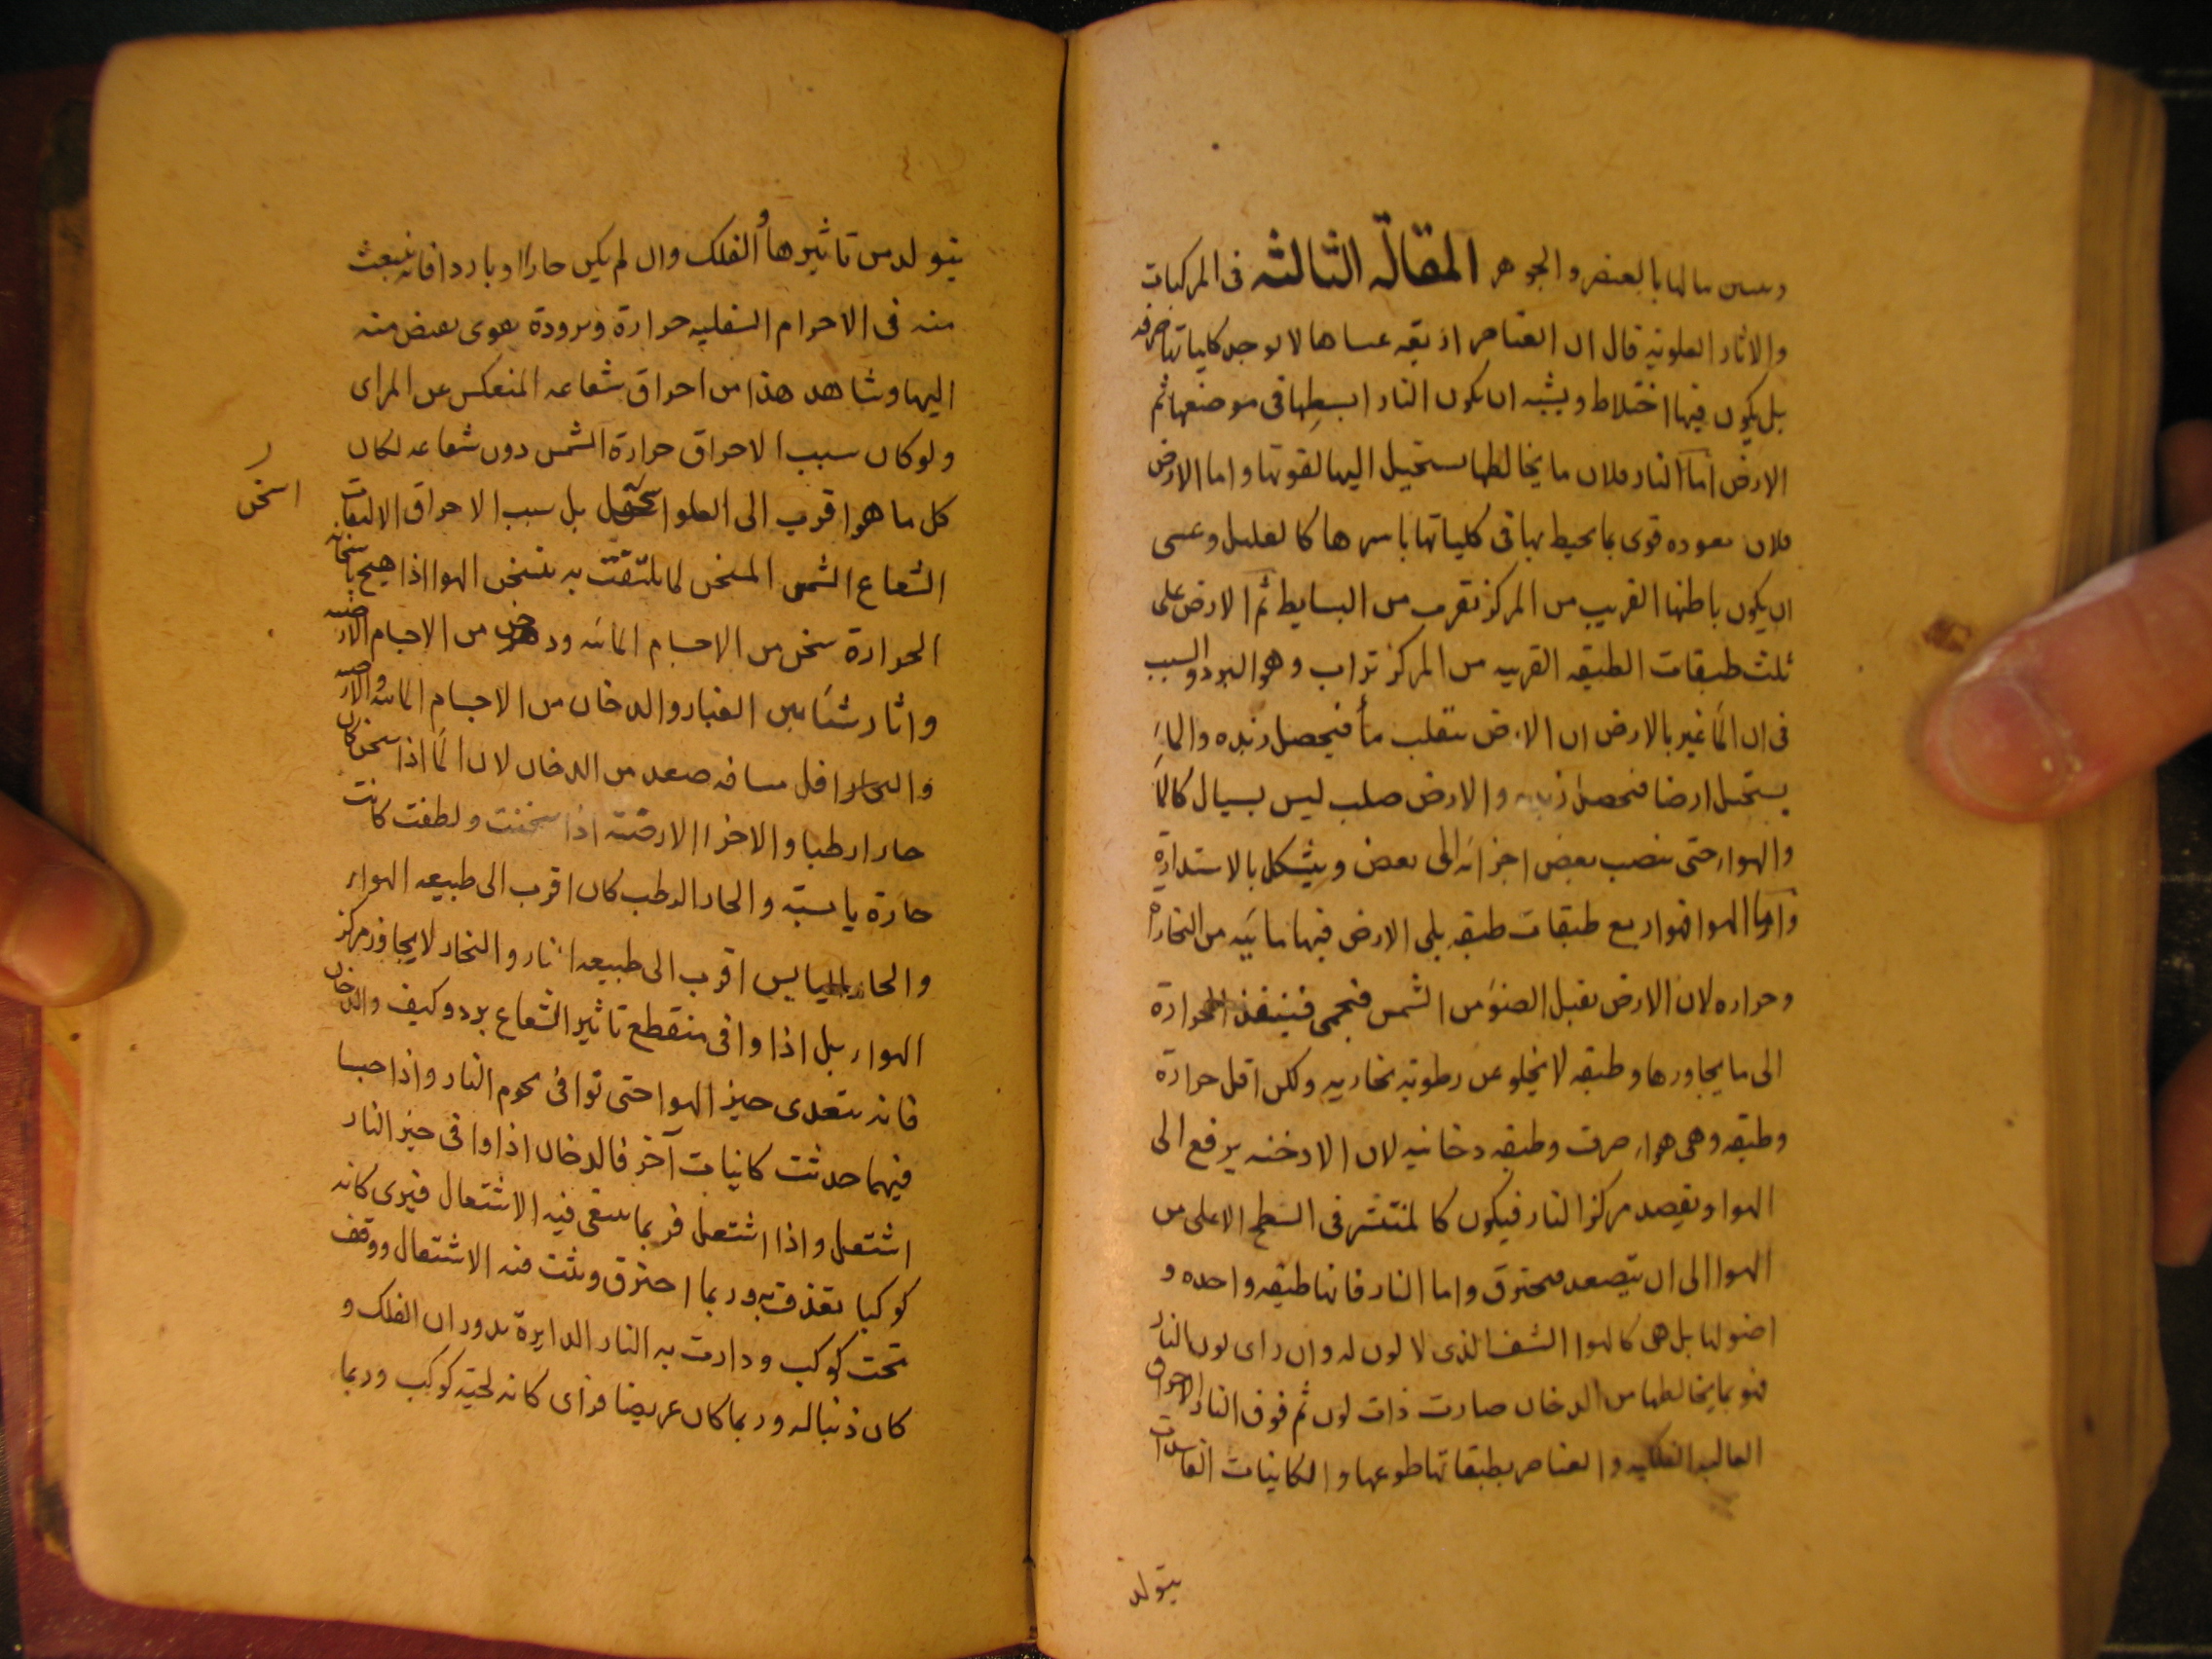 وسىن مالها بالعنصر والجوهر المقالة الثالثة فى المركبات
والاثار العلوية قال ان العناصر اربعة عساها لا توجد كلياتها صرفه
بل يكون فيها اختلاط ويشبه ان يكون النار ابسطها فى موضعها ثم
الارض اما النار فلان ما يخالطها يستحيل اليها لقوتها واما الارض
فلان نفوذ قوى ما يحيط بها فى كلياتها باسرها كالقليل وعسى
ان يكون باطنها القريب من المركز تقرب من البسايط ثم الارض على
ثلث طبقات الطبقه القريبه من المركز تراب وهو البرد والسبب
فى ان الماء غير بالارض ان الارض تنقلب ماء فيحصل ربده والماء
يستحيل ارضا فيحصل ربده والارض صلب ليس بسيال كالماء
والهواء حتى ينصب بعض اجزائه الى بعض ويتشكل بالاستدارة
واما الهوا فهو اربع طبقات طبقه يلى الارض فيها مائيه من البخارات
وحراره لان الارض تقبل الضوء من الشمس فيحمى فينفذ الحرارة
الى ما يجاورها وطبقه لا يخلو عن رطوبة بخاريه ولكن اقل حرارة
وطبقه وهى هواء صرف وطبقه دخانيه لان الادخنه يرفع الى
الهوا ويقصد مركز النار فيكون كالمنتشر فى السطح الاعلى من
الهوا الى ان يتصعد فيحترق واما النار فانها طبقه واحده و
لا ضو لها بل هى كالهوا الشف الذى لا لون له وان راى لون النار
فهو بما يخالطها من الدخان صارت ذات لون ثم فوق النار الاجرام
العاليه الفلكيه والعناصر بطبقاتها طوعها والكاينات الفاسدات
يتولد
يتولد من تاثيرها والفلك وان لم يكن حارا او باردا فانه ينبعث
منه فى الاجرام السفليه حرارة وبرودة بقوى يفيض منه
اليها وشاهد هذا من احراق شعاعه المنعكس عن المراى
ولو كان سبب الاحراق حرارة الشمس دون شعاعه لكان
كل ما هو اقرب الى العلو بل سبب الاحراق الالتفات
اسخن
الشعاع الشمس المسخن لما يلتقت به فيسخن الهوا اذا هيج باسخانه
الحرارة سخن من الاجسام المائيه ودخن من الاجسام الارضيه
واثار شئا بين الغبار والدخان من الاجسام المائيه والارضيه
والبخار اقل مسافه صعد من الدخان لان الماء اذا سخن كان
حارا رطبا والاجزا الارضيه اذا سخنت ولطفت كانت
حارة يابسة والحار الرطب كان اقرب الى طبيعه الهواء
والحار اليابس اقرب الى طبيعه النار والبخار لا يجاوز مركز
الهواء بل اذا وافى منقطع تاثير الشعاع برد وكيف والدخان
فانه يتعدى حيز الهوا حتى توافى تخوم النار واذا حبسا
فيهما حدثت كاينات آخر فالدخان اذا وافى حيز النار
اشتعل واذا اشتعل فربما سعى فيه الاشتعال فيرى كانه
كوكبا يقذف به وربما احترق وثبت فيه الاشتعال ووقف
تحت كوكب ودارت به النار الدايرة بدوران الفلك و
كان ذنبا له وربما كان عريضا فراى كانه لحية كوكب وربما